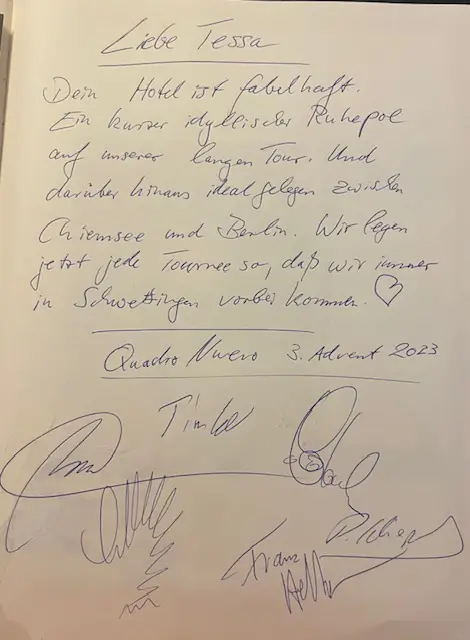 Liebe Tessa
Dein Hotel ist fabelhaft.
Ein kurzer idyllischer Ruhepol
auf unserer langen Tour. Und
darüber hinaus ideal gelegen zwischen
Chiemsee und Berlin. Wir legen
jetzt jede Tournee so, daß wir immer
in Schwetzingen vorbei kommen. ♡
Quadro Nuevo 3. Advent 2023
Franz